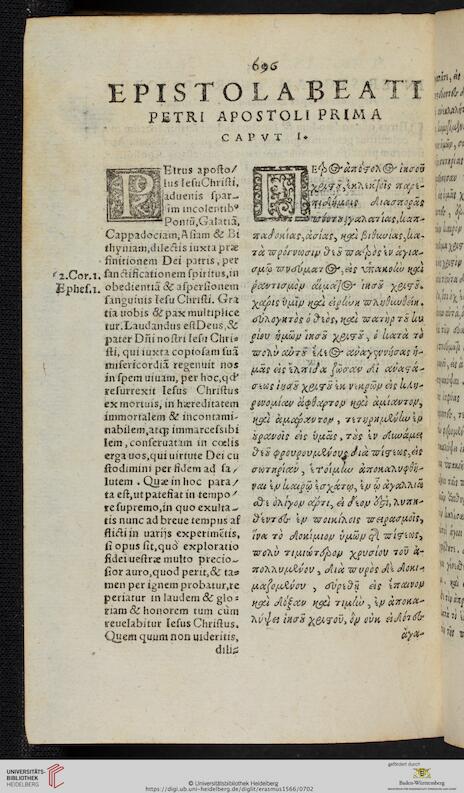 696
EPISTOLA BEATI
PETRI APOSTOLI PRIMA
CAPVT I.
PEtrus aposto/
lus Iesu Christi,
aduenis spar=
sim incolentibꝰ
Pontũ, Galatiã,
Cappadociam, Asiam & Bi
thyniam, dilectis iuxta præ
finitionem Dei patris, per
2.Cor.1.
sanctificationem spiritus, in
Ephes.1.
obedientiã & aspersionem
sanguinis Iesu Christi. Gra
tia uobis & pax multiplice
tur. Laudandus est Deus, &
pater Dñi nostri Iesu Chri=
sti, qui iuxta copiosam suã
misericordiã regenuit nos
in spem uiuam, per hoc, qd
resurrexit Iesus Christus
ex mortuis, in hæreditatem
immortalem & incontami=
nabilem, atq; immarcessibi
lem, conseruatam in cœlis
erga uos, qui uirtute Dei cu
stodimini per fidem ad sa/
lutem. Quæ in hoc para/
ta est, ut patefiat in tempo/
re supremo, in quo exulta=
tis nunc ad breue tempus af
flicti in uarijs experimẽtis,
si opus sit, quò exploratio
fidei uestræ multo precio=
sior auro, quod perit, & ta=
men per ignem probatur, re
periatur in laudem & glo=
riam & honorem tum cùm
reuelabitur Iesus Christus.
Quem quum non uideritis,
dili=
ΠΕτρος ἀπόστολος ἰησοῦ
χριστοῦ, ἐκλεκτοῖς παρε-
πιδήμοις διασπορᾶς
πόντου, γαλατίας, καπ-
παδοκίας, ἀσίας, καὶ βιθυνίας, κα-
τὰ πρόγνωσιν θεοῦ πατρὸς ἐν ἁγια-
σμῷ πνεύματος, εἰς ὑπακοὴν καὶ
ῥαντισμὸν αἵματος ἰησοῦ χριστοῦ.
χάρις ὑμῖν καὶ εἰρήνη πληθυνθείη.
εὐλογητὸς ὁ θεὸς, καὶ πατὴρ τοῦ κυ
ρίου ἡμῶν ἰησοῦ χριστοῦ, ὁ κατὰ τὸ
πολὺ αὐτοῦ ἔλεος ἀναγεννήσας ἡ-
μᾶς εἰς ἐλπίδα ζῶσαν δι' ἀναστά-
σεως ἰησοῦ χριστοῦ ἐκ νεκρῶν εἰς κλη-
ρονομίαν ἄφθαρτον καὶ ἀμίαντον,
καὶ ἀμάραντον, τετηρημένην ἐν
οὐρανοῖς εἰς ὑμᾶς, τοὺς ἐν δυνάμει
θεοῦ φρουρουμένους διὰ πίστεως, εἰς
σωτηρίαν, ἑτοίμην ἀποκαλυφθῆ-
ναι ἐν καιρῷ ἐσχάτῳ, ἐν ᾧ ἀγαλλιᾶ
σθε ὀλίγον ἄρτι, εἰ δέον ἐστὶ, λυπη-
θέντες ἐν ποικίλοις πειρασμοῖς,
ἵνα τὸ δοκίμιον ὑμῶν τῆς πίστεως,
πολὺ τιμιώτερον χρυσίου τοῦ ἀ-
πολλυμένου, διὰ πυρὸς δὲ δοκι-
μαζομένου, εὑρεθῇ εἰς ἔπαινον
καὶ δόξαν καὶ τιμὴν, ἐν ἀποκα-
λύψει ἰησοῦ χριστοῦ, ὃν οὐκ εἰδότες
ἀγα-
UNIVERSITÄTS-
BIBLIOTHEK
HEIDELBERG
© Universitätsbibliothek Heidelberg
https://digi.ub.uni-heidelberg.de/diglit/erasmus1566/0702
gefördert durch
Baden-Württemberg